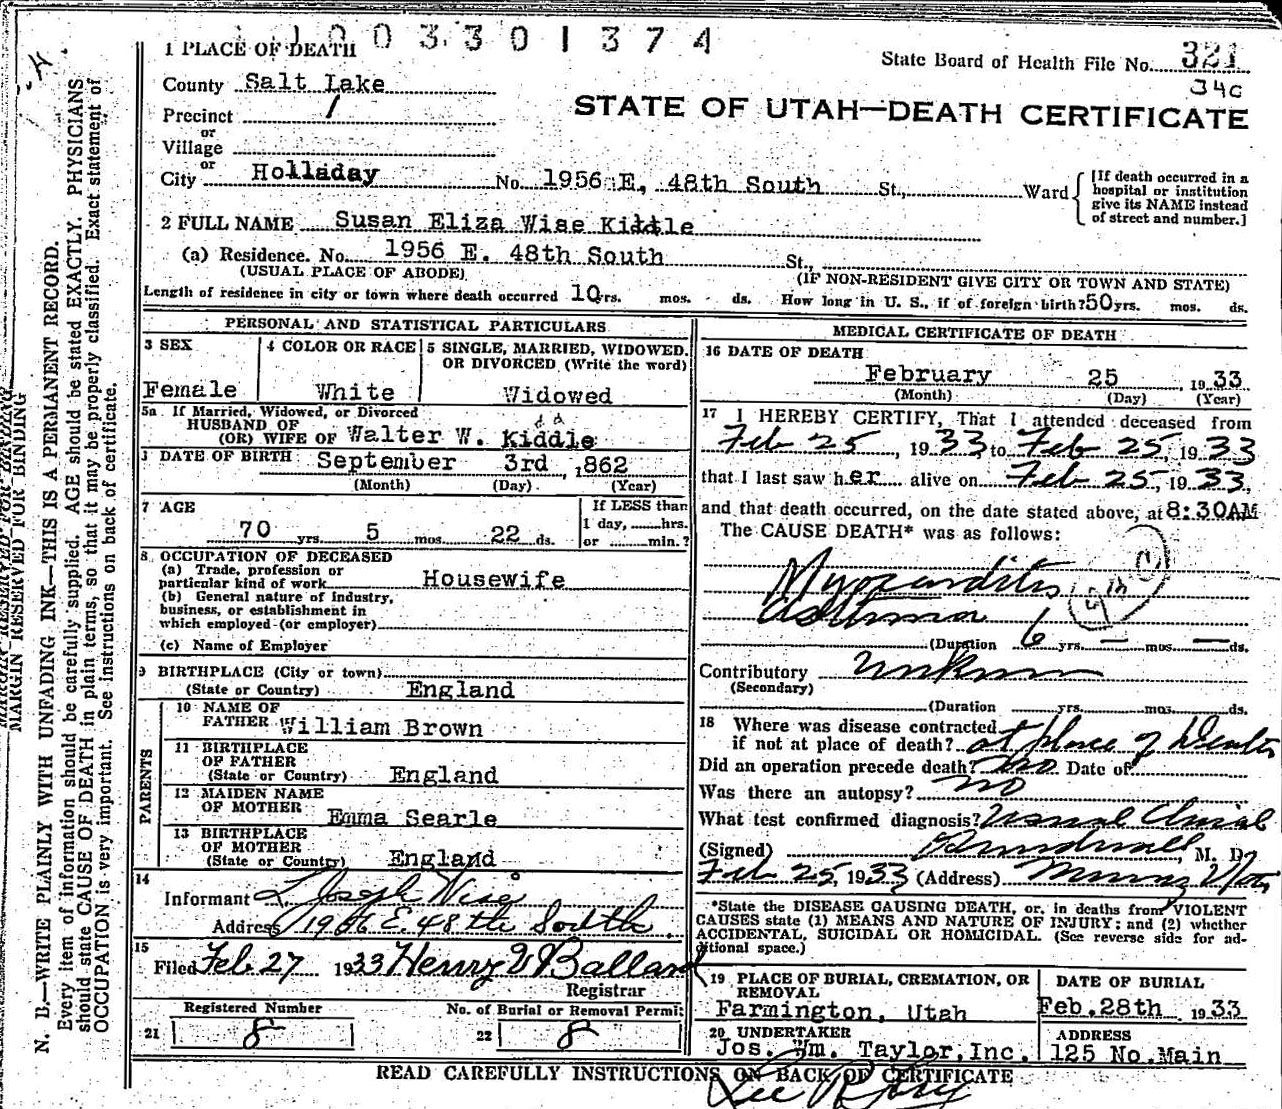 1003301374
1 PLACE OF DEATH
State Board of Health File No. 321
34c
County Salt Lake
STATE OF UTAH—DEATH CERTIFICATE
Precinct 1
or
Village
or
City Holladay No. 1956 E. 48th South St., Ward
[If death occurred in a
hospital or institution
give its NAME instead
of street and number.]
2 FULL NAME Susan Eliza Wise Kiddle
(a) Residence. No. 1956 E. 48th South St.,
(USUAL PLACE OF ABODE) (IF NON-RESIDENT GIVE CITY OR TOWN AND STATE)
Length of residence in city or town where death occurred 10 yrs. mos. ds. How long in U. S., if of foreign birth? 50 yrs. mos. ds.
PERSONAL AND STATISTICAL PARTICULARS
3 SEX 4 COLOR OR RACE 5 SINGLE, MARRIED, WIDOWED.
OR DIVORCED (Write the word)
Female White Widowed
5a If Married, Widowed, or Divorced
HUSBAND OF
(OR) WIFE OF Walter W. Kiddle
dd
DATE OF BIRTH September 3rd ,1862
(Month) (Day) (Year)
7 AGE If LESS than
1 day, hrs.
70 yrs. 5 mos. 22 ds. or min.?
8 OCCUPATION OF DECEASED
(a) Trade, profession or
particular kind of work Housewife
(b) General nature of industry,
business, or establishment in
which employed (or employer)
(c) Name of Employer
9 BIRTHPLACE (City or town)
(State or Country) England
PARENTS
10 NAME OF
FATHER William Brown
11 BIRTHPLACE
OF FATHER
(State or Country) England
12 MAIDEN NAME
OF MOTHER
Emma Searle
13 BIRTHPLACE
OF MOTHER
(State or Country) England
14
Informant L. Joseph Wise
Address 1956 E. 48th South
15
Filed Feb. 27 1933 Henry V Ballard
Registrar
Registered Number No. of Burial or Removal Permit
21 8 22 8
MEDICAL CERTIFICATE OF DEATH
16 DATE OF DEATH
February 25 , 1933
(Month) (Day) (Year)
17 I HEREBY CERTIFY, That I attended deceased from
Feb 25, 1933 to Feb 25, 1933
that I last saw her alive on Feb 25, 1933,
and that death occurred, on the date stated above, at 8:30AM
The CAUSE DEATH* was as follows:
Myocarditis
Asthma
(Duration 6 yrs. — mos. — ds.
Contributory Unknown
(Secondary)
(Duration yrs. mos. ds.
18 Where was disease contracted
if not at place of death? at place of Death
Did an operation precede death? no Date of
Was there an autopsy? no
What test confirmed diagnosis? Usual Clinical
(Signed) M. D.
Feb 25, 1933 (Address) Murray Utah
*State the DISEASE CAUSING DEATH, or, in deaths from VIOLENT
CAUSES state (1) MEANS AND NATURE OF INJURY; and (2) whether
ACCIDENTAL, SUICIDAL OR HOMICIDAL. (See reverse side for ad-
ditional space.)
19 PLACE OF BURIAL, CREMATION, OR
REMOVAL
Farmington, Utah
DATE OF BURIAL
Feb. 28th 1933
20 UNDERTAKER
Jos. Wm. Taylor, Inc.
ADDRESS
125 No. Main
READ CAREFULLY INSTRUCTIONS ON BACK OF CERTIFICATE
MARGIN RESERVED FOR BINDING
N. B.—WRITE PLAINLY WITH UNFADING INK—THIS IS A PERMANENT RECORD.
Every item of information should be carefully supplied. AGE should be stated EXACTLY. PHYSICIANS
should state CAUSE OF DEATH in plain terms, so that it may be properly classified. Exact statement of
OCCUPATION is very important. See instructions on back of certificate.